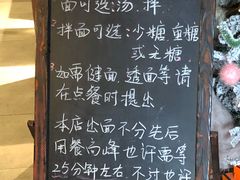 面可选:汤、拌
拌面可选:沙糖 重糖
或无糖
如需健面、透面等请
在点餐时提出
本店出面不分先后
用餐高峰也许需等
25分钟左右,不过也许